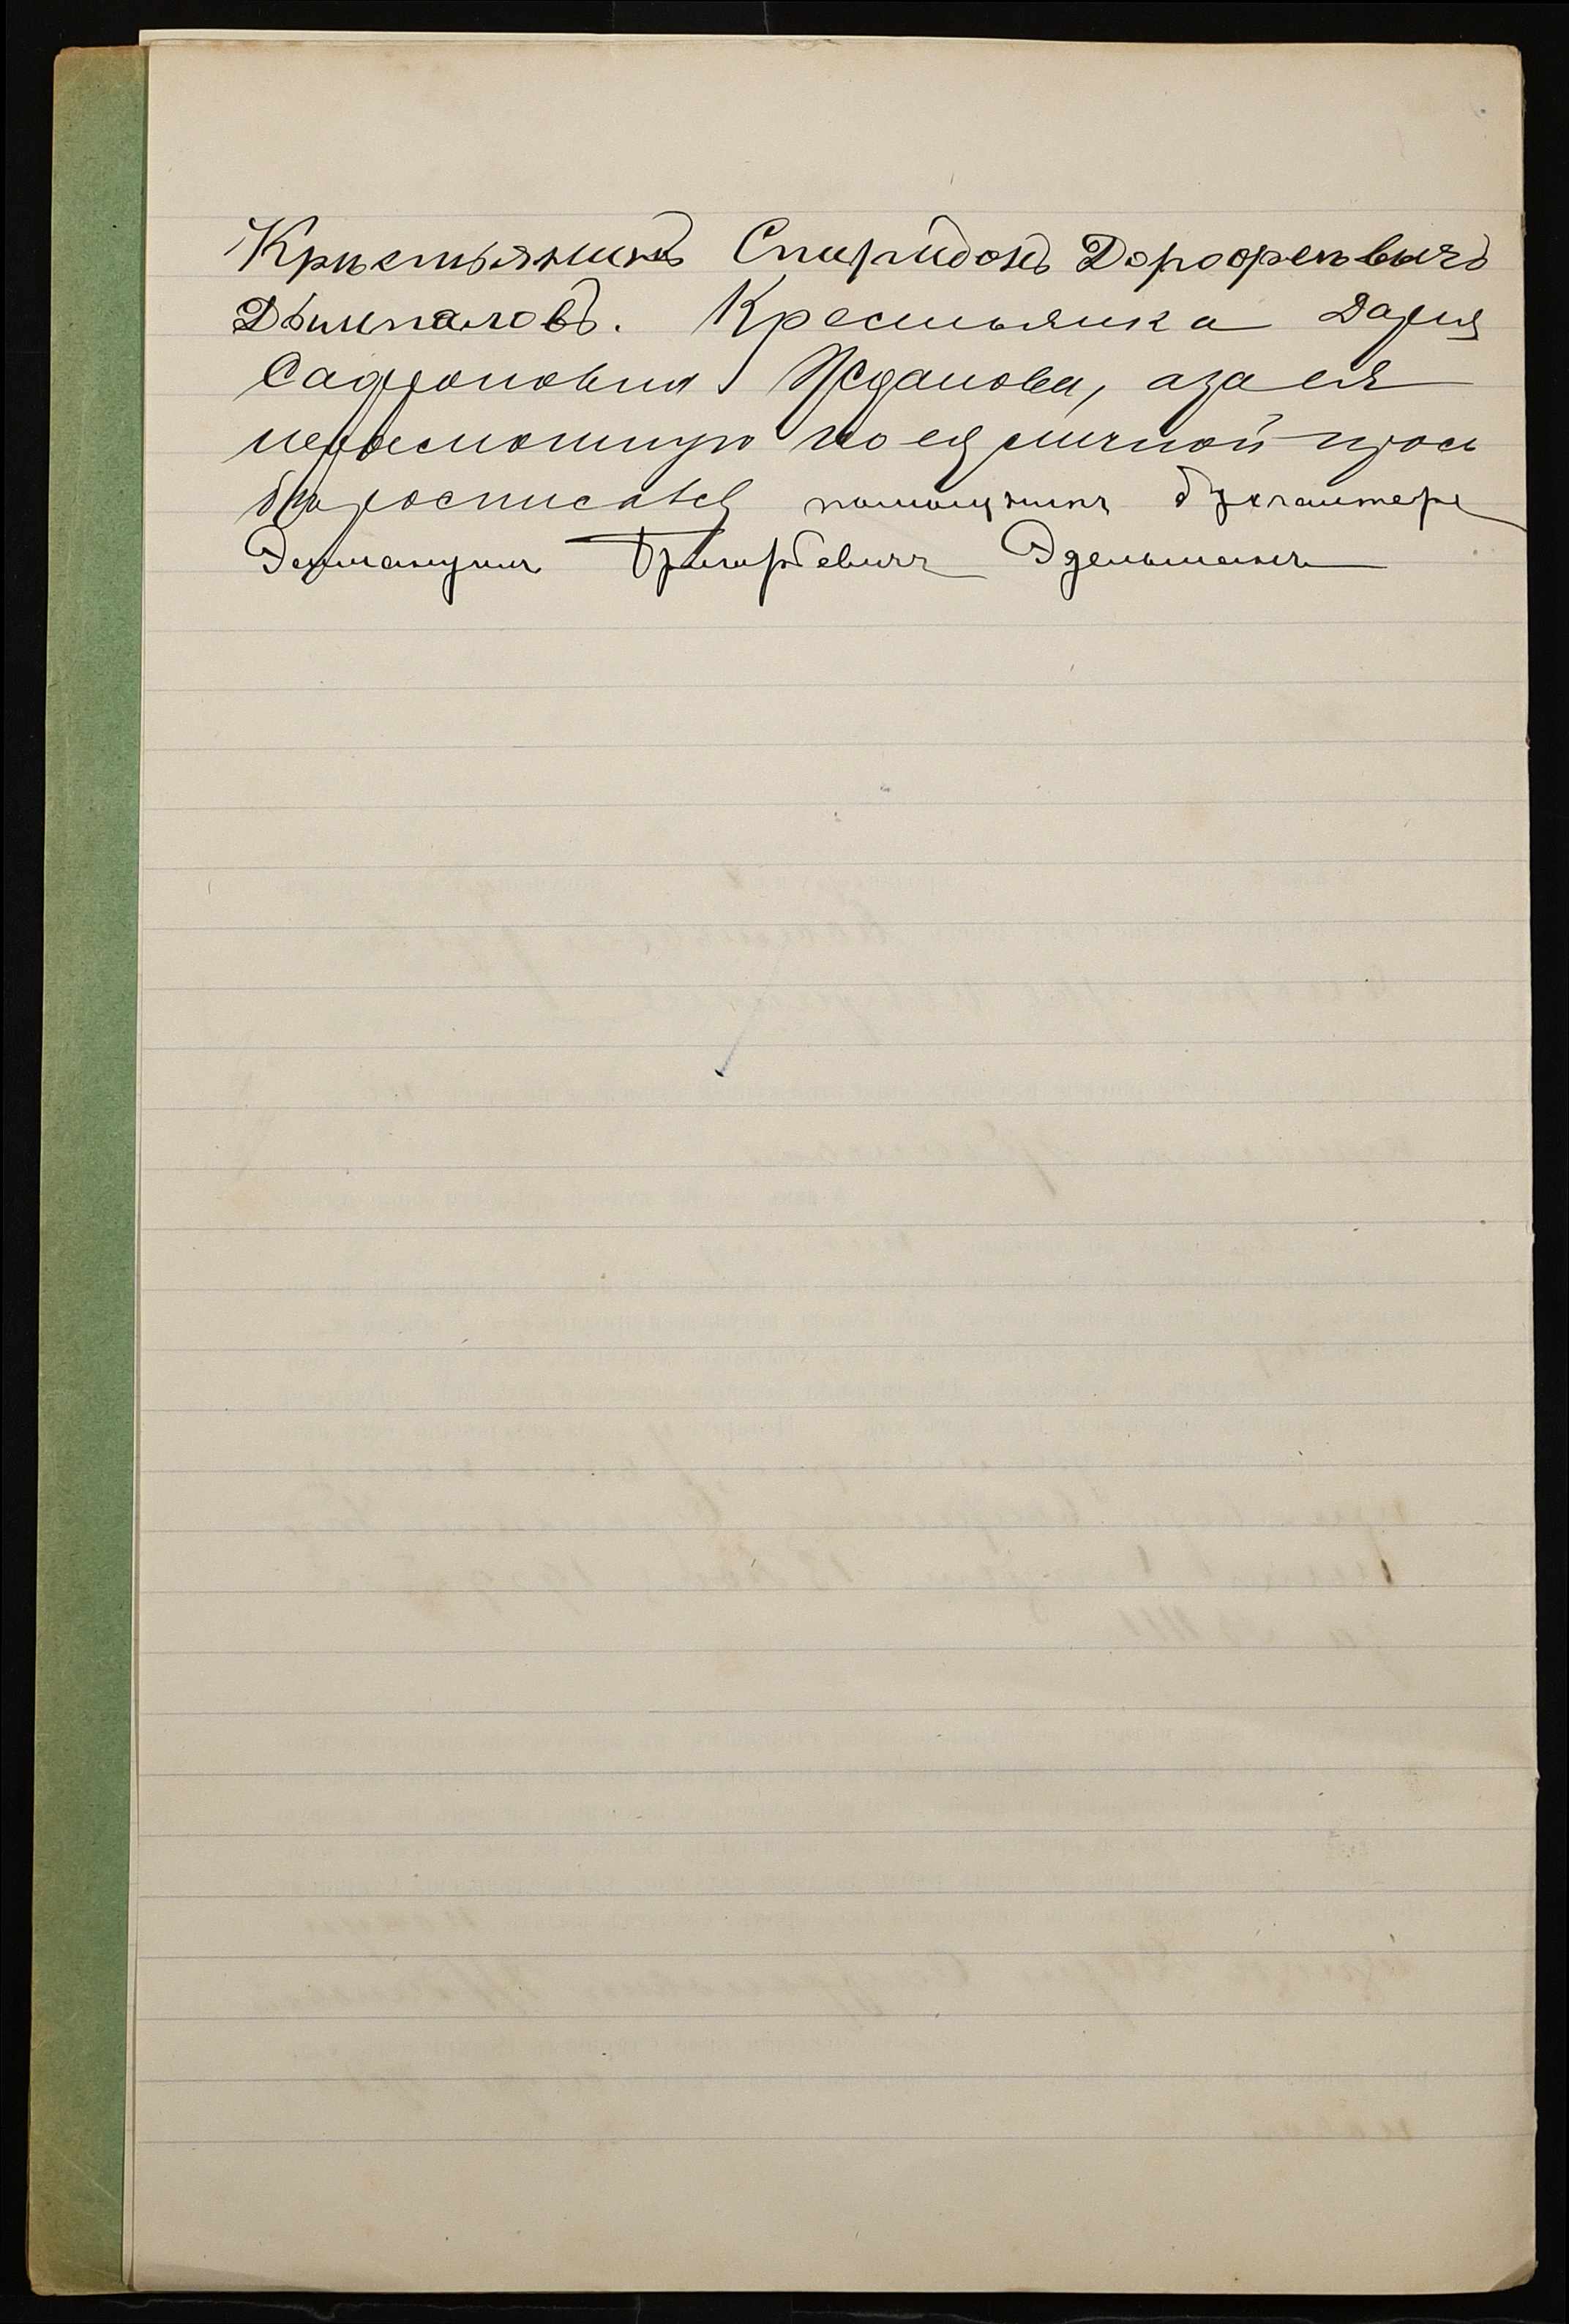 Крѣстьянинъ Спиридонъ Дорофеѣвычъ
Дьшпаловъ. Крестьянка Дарья
Сафроновна Жданова, аза ея
неграмотную по ея личной прось
бѣ росписався помощникъ бухгалтера
Григорьевичъ Эдельманъ